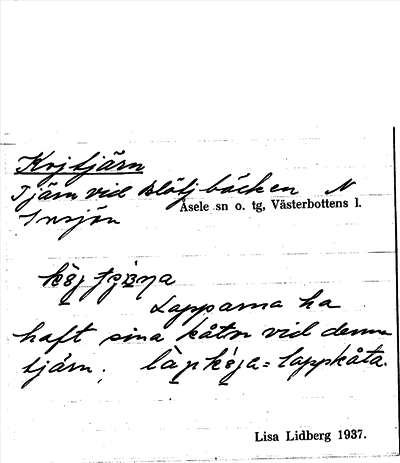 Kojtjärn
Tjärn vid Blötjbäcken N
Åsele sn o. tg, Västerbottens l.
Insjön
Lapparna ha
haft sina kåtor vid denna
tjärn. = lappkåta.
Lisa Lidberg 1937.